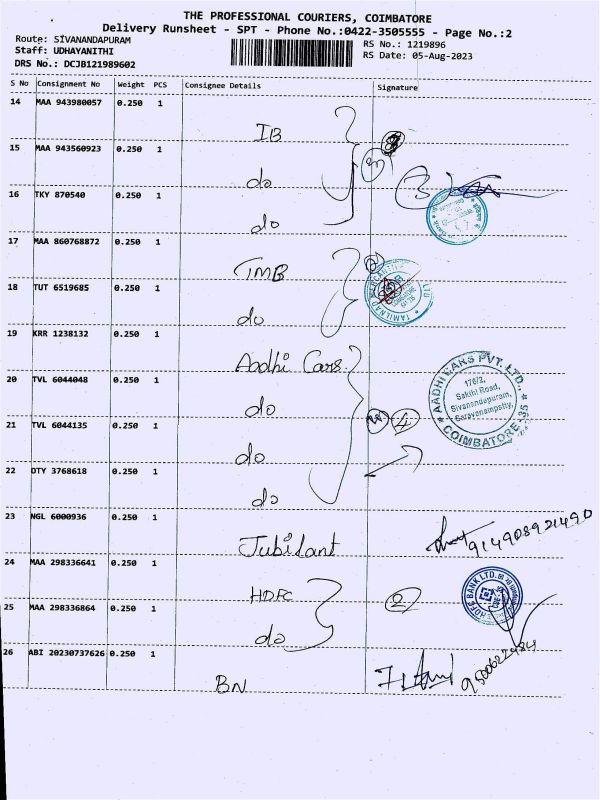 THE PROFESSIONAL COURIERS, COIMBATORE
Delivery Runsheet - SPT - Phone No.:0422-3505555 - Page No.:2
Route: SIVANANDAPURAM
RS No.: 1219896
Staff: UDHAYANITHI
RS Date: 05-Aug-2023
DRS No.: DCJB121989602
S No Consignment No Weight PCS Consignee Details Signature
14 MAA 943980057 0.250 1
IB
15 MAA 943560923 0.250 1
do
3
16 TKY 870540 0.250 1
do
17 MAA 860768872 0.250 1
TMB
2
18 TUT 6519685 0.250 1
do
19 KRR 1238132 0.250 1
Aadhi Cars
20 TVL 6044048 0.250 1
do
AADHI CARS PVT. LTD.,
176/2,
Sakthi Road,
Sivanandapuram,
Saravanampatty,
COIMBATORE-35
21 TVL 6044135 0.250 1
do
4
22 OTY 3768618 0.250 1
do
23 NGL 6000936 0.250 1
Jubilant
914908921490
24 MAA 298336641 0.250 1
HDFC
2
HDFC BANK LTD.
25 MAA 298336864 0.250 1
do
26 ABI 20230737626 0.250 1
BN